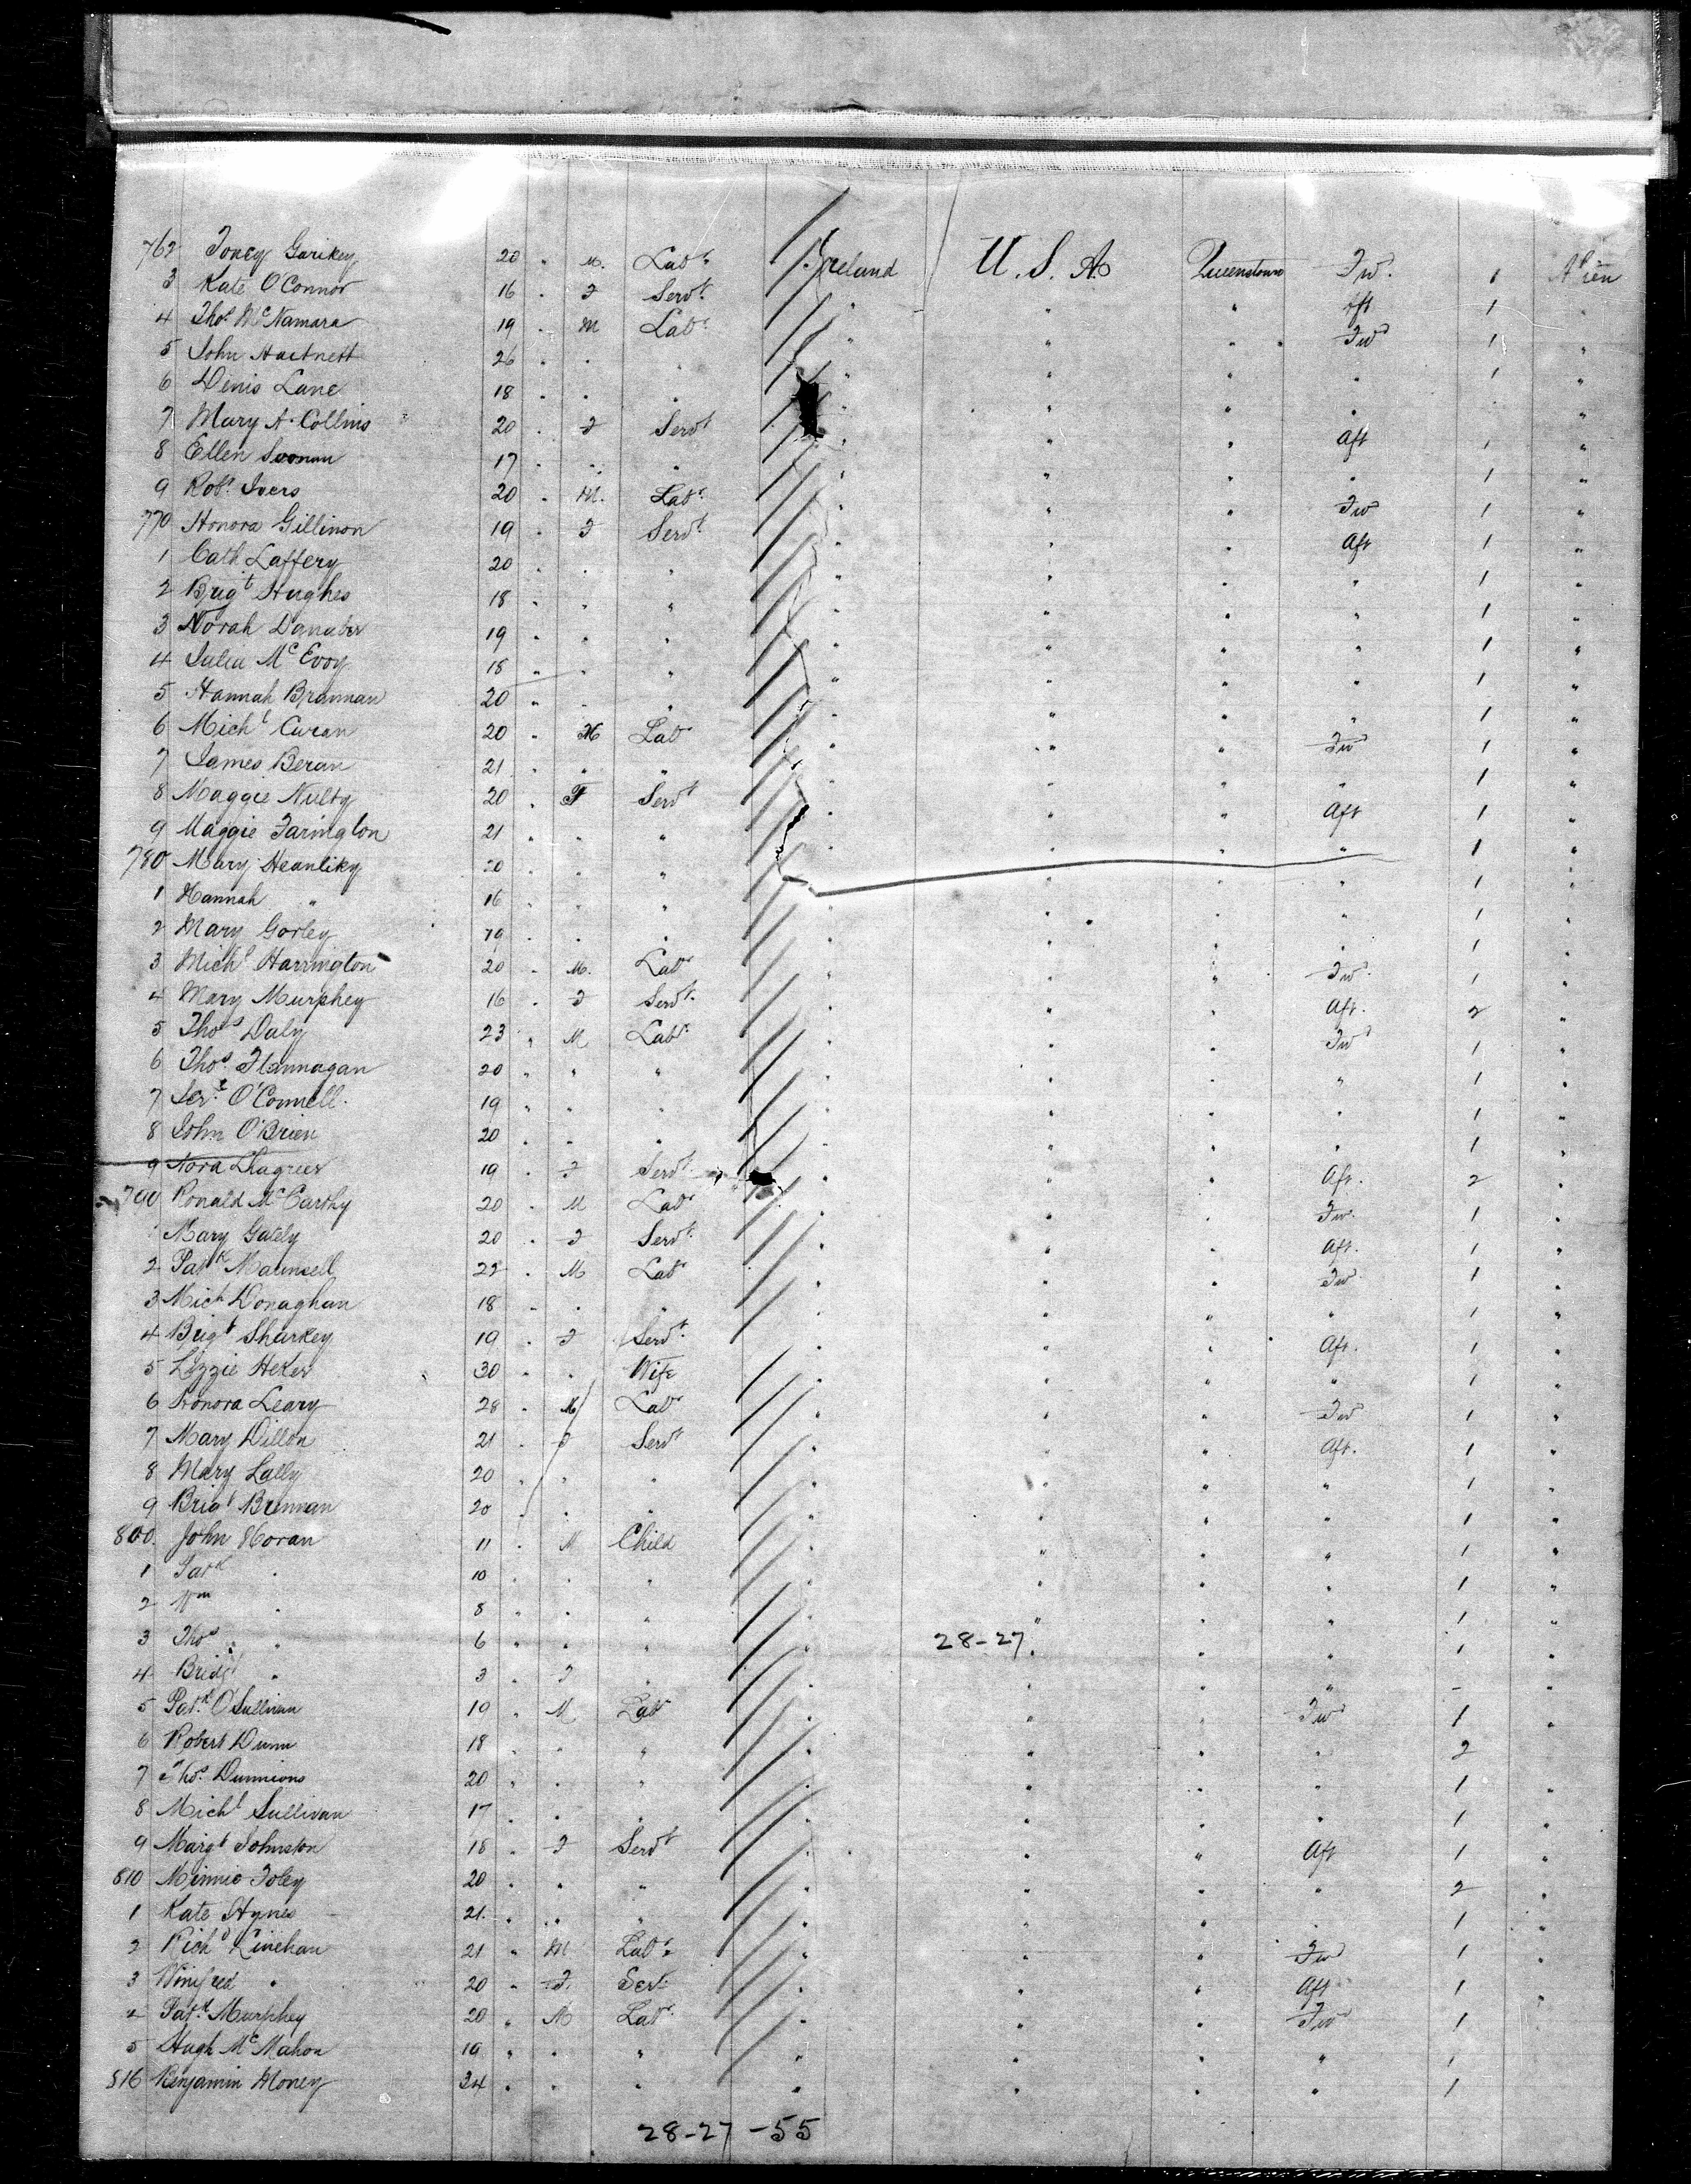 762 Toney Garikey 20 " M. Labr Ireland U.S.A. Queenstown Fwd. 1 Alien
3 Kate O'Connor 16 " F Servt. " " Aft 1 "
4 Thos McNamara 19 " M Labr " " " Fwd 1 "
5 John Hartnett 26 " " " " " " 1 "
6 Denis Lane 18 " " " " " " " "
7 Mary A. Collins 20 " F Servt " " " Aft 1 "
8 Ellen 17 " " " " " " " 1 "
9 Robt. Ivers 20 " M. Labr. " " Fwd 1 "
770 Honora Gillinon 19 " F Servt. " " Aft 1 "
1 Cath Laffery 20 " " " " " " " 1 "
2 Brigt Hughes 18 " " " " " " 1 "
3 Norah Danaher 19 " " " " " " " 1 "
4 Julia McEvoy 18 " " " " " " 1 "
5 Hannah Brannan 20 " " " " " " 1 "
6 Michl Curan 20 " M Labr " " " Fwd 1 "
7 James Beran 21 " " " " " " 1 "
8 Maggie Nulty 20 " F Servt " " Aft 1 "
9 Maggie Farington 21 " " " " " " " 1 "
780 Mary Heanliky 20 " " " " " " 1 "
1 Hannah " 16 " " " " " " " 1 "
2 Mary Gorley 19 " " " " " " " 1 "
3 Michl Harrington 20 " M. Labr " " " Fwd. 1 "
4 Mary Murphey 16 " F Servt. " " Aft. 2 "
5 Thos Daly 23 " M Labr. " " " Fwd 1 "
6 Thos. Flannagan 20 " " " " " " " 1 "
7 Jer. O'Connell. 19 " " " " " " " 1 "
8 John O'Brien 20 " " " " " " " 1 "
9 Nora 19 " F Servt. " " Aft. 2 "
790 Ronald McCarthy 20 " M Labr " " Fwd. 1 "
1 Mary Gately 20 " F Servt. " " " Aft. 1 "
2 Patk Maunsell 22 " M Labr " " Fwd. 1 "
3 Mich Donaghan 18 " " " " " " " 1 "
4 Brigt Sharkey 19 " F Servt. " " Aft. 1 "
5 Lizzie Heker 30 " " Wife " " " " 1 "
6 Honora Leary 28 " M Labr " " " Fwd 1 "
7 Mary Dillon 21 " F Servt " " Aft. 1 "
8 Mary Lally 20 " " " " " " " 1 "
9 Brigt Brennan 20 " " " " " " " 1 "
800. John Horan 11 " M Child " " " " 1 "
1 Patk " 10 " " " " " " " 1 "
2 Wm " 8 " " " " " " " 1 "
3 Thos " 6 " " " " 28-27. " " 1 "
4 Bridgt " 3 " F " " " " " - "
5 Patk. O'Sullivan 19 " M Labr " " " Fwd 1 "
6 Robert Dunn 18 " " " " " " " 2
7 Thos. Dunnions 20 " " " " " " " 1 "
8 Michl Sullivan 17 " " " " " " " 1 "
9 Margt Johnston 18 " F Servt " " " Aft 1 "
810 Minnie Foley 20 " " " " " " " 2 "
1 Kate Hynes 21. " " " " " " " 1 "
2 Richd Linehan 21 " M Labr. " " " Fwd 1 "
3 Winifred " 20 " F. Ser. " " " Aft 1 "
4 Patk. Murphey 20 " M Labr. " " " Fwd 1
5 Hugh McMahon 19 " " " " " " " 1
816 Benjamin Money 24 " " " " " " " 1
28-27-55